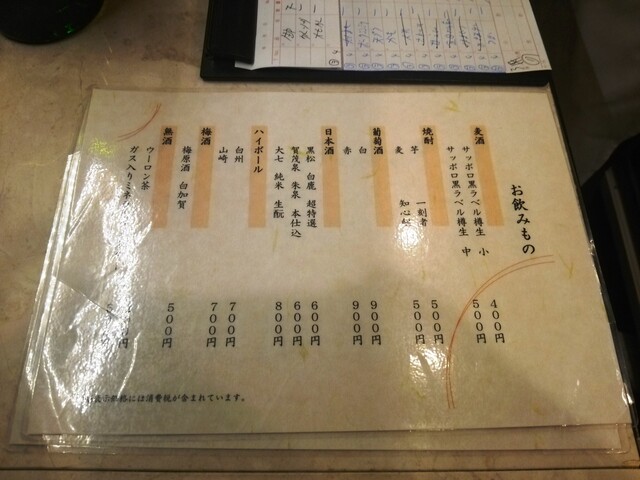 お飲みもの
麦酒
サッポロ黒ラベル樽生 小 400円
サッポロ黒ラベル樽生 中 500円
焼酎
芋 一刻者 500円
麦 知心剣 500円
葡萄酒
白 900円
赤 900円
日本酒
黒松 白鹿 超特選 600円
賀茂泉 朱泉 本仕込 600円
大七 純米 生酛 800円
ハイボール
白州 700円
山崎 700円
梅酒
梅原酒 白加賀 500円
無酒
ウーロン茶
ガス入りミネ
価格には消費税が含まれています。